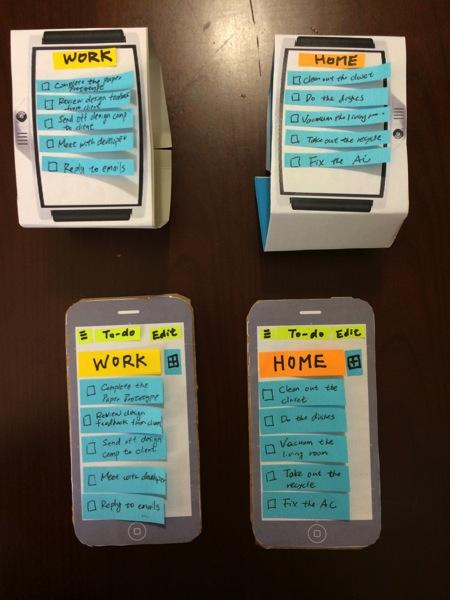 WORK
Complete the Paper
Prototype
Review design feedback
from client
Send off design comp
to client
Meet with developer
Reply to emails
HOME
Clean out the closet
Do the dishes
Vacuum the living
Take out the recycle
Fix the AC
To-do Edit
WORK
Complete the
Paper Prototype
Review design
Feedback from client
Send off design
comp to client
Meet with developer
Reply to emails
To-do Edit
HOME
Clean out the
closet
Do the dishes
Vacuum the
living room
Take out the
recycle
Fix the AC